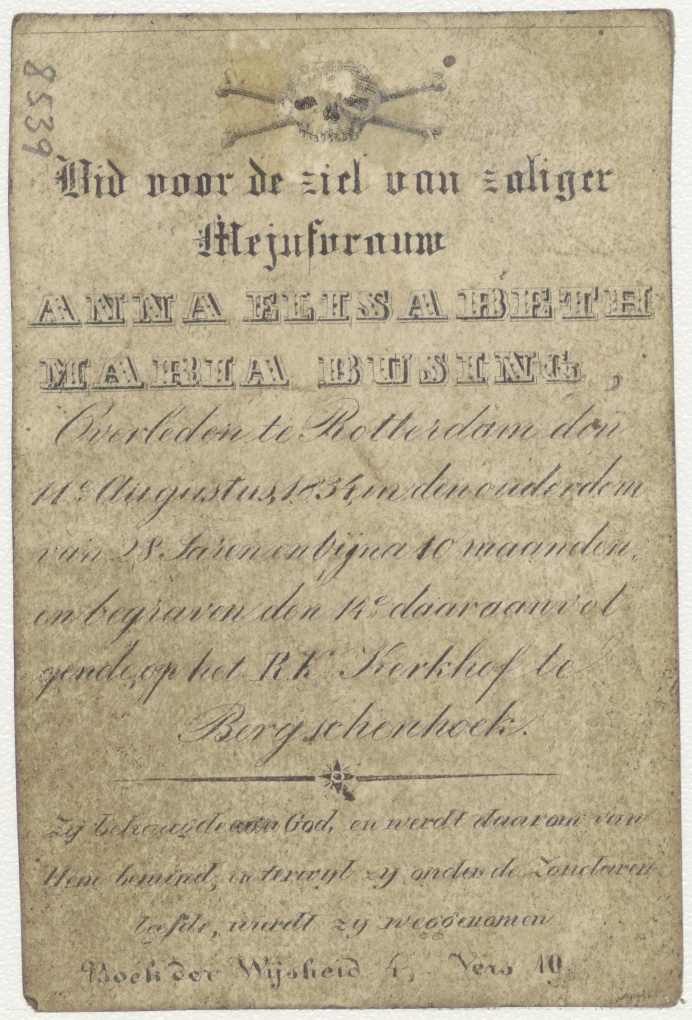 8539
Bid voor de ziel van zaliger
Mejufvrouw
ANNA ELISABETH
MARIA BUSING,
Overleden te Rotterdam den
11e Augustus, 1834, in den ouderdom
van 28 Jaren en bijna 10 maanden,
en begraven den 14e daaraanvol
gende, op het R.K. Kerkhof te
Bergschenhoek.
Zy behaagde aan God, en werdt daarom van
Hem bemind, en terwyl zy onder de Zondaren
leefde, werdt zy weggenomen
Boek der Wijsheid 4, Vers 10